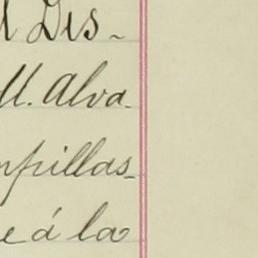 l Dis-
M. Alva-
mpillas-
e á la